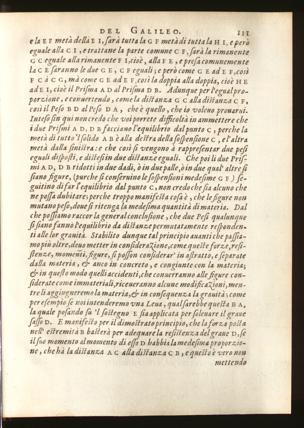 DEL GALILEO. 111
e la E F metà della E I, sarà tutta la G F metà di tutta la H I, e però
eguale alla C I, e trattane la parte comune C F, sarà la rimanente
G C eguale alla rimanente F I, cioè, alla F E, e presa comunemente
la C E saranno le due G E, C F eguali; e però come G E ad E F, così
F C à C G, mà come G E ad E F, così la doppia alla doppia, cioè H E
ad E I, cioè il Prisma A D al Prisma D B. Adunque per l'egual pro-
porzione, e conuertendo, come la distanza G C alla distanza C F,
così il Peso D B al Peso D A, che è quello, che io voleuo prouarui.
Inteso sin quì non credo che voi porrete difficoltà in ammettere che
i due Prismi A D, D B facciano l'equilibrio dal punto C, perche la
metà di tutto 'l solido A B è alla destra della sospensione C, e l'altra
metà dalla sinistra: e che così si vengono à rappresentar due pesi
eguali disposti, e distesi in due distanze eguali. Che poi li due Pris-
mi A D, D B ridotti in due dadi, ò in due palle, ò in due qual' altre si
siano figure, (purche si conseruino le sospensioni medesime G F) se-
guitino di far l'equilibrio dal punto C, non credo che sia alcuno che
ne possa dubitare, perche troppo manifesta cosa è, che le figure non
mutano peso, doue si ritenga la medesima quantità di materia. Dal
che possiamo raccor la general conclusione, che due Pesi qualunque
si siano fanno l'equilibrio da distanze permutatamente responden-
ti alle lor grauità. Stabilito dunque tal principio auanti che passia-
mo più oltre, deuo metter in considerazione, come queste forze, resi-
stenze, momenti, figure, si posson considerar' in astratto, e separate
dalla materia, & anco in concreto, e congiunte con la materia;
& in questo modo quelli accidenti, che conuerranno alle figure con-
siderate come immateriali, riceueranno alcune modificazioni, men-
tre li aggiugneremo la materia, & in consequenza la grauità. come
per esempio se noi intenderemo una Leua, qual sarebbe questa B A,
la quale posando su 'l sostegno E sia applicata per soleuare il graue
sasso D. È manifesto per il dimostrato principio, che la forza posta
nell' estremità B basterà per adequare la resistenza del graue D, se
il suo momento al momento di esso D habbia la medesima proporzio-
ne, che hà la distanza A C alla distanza C B, e questo è vero non
mettendo